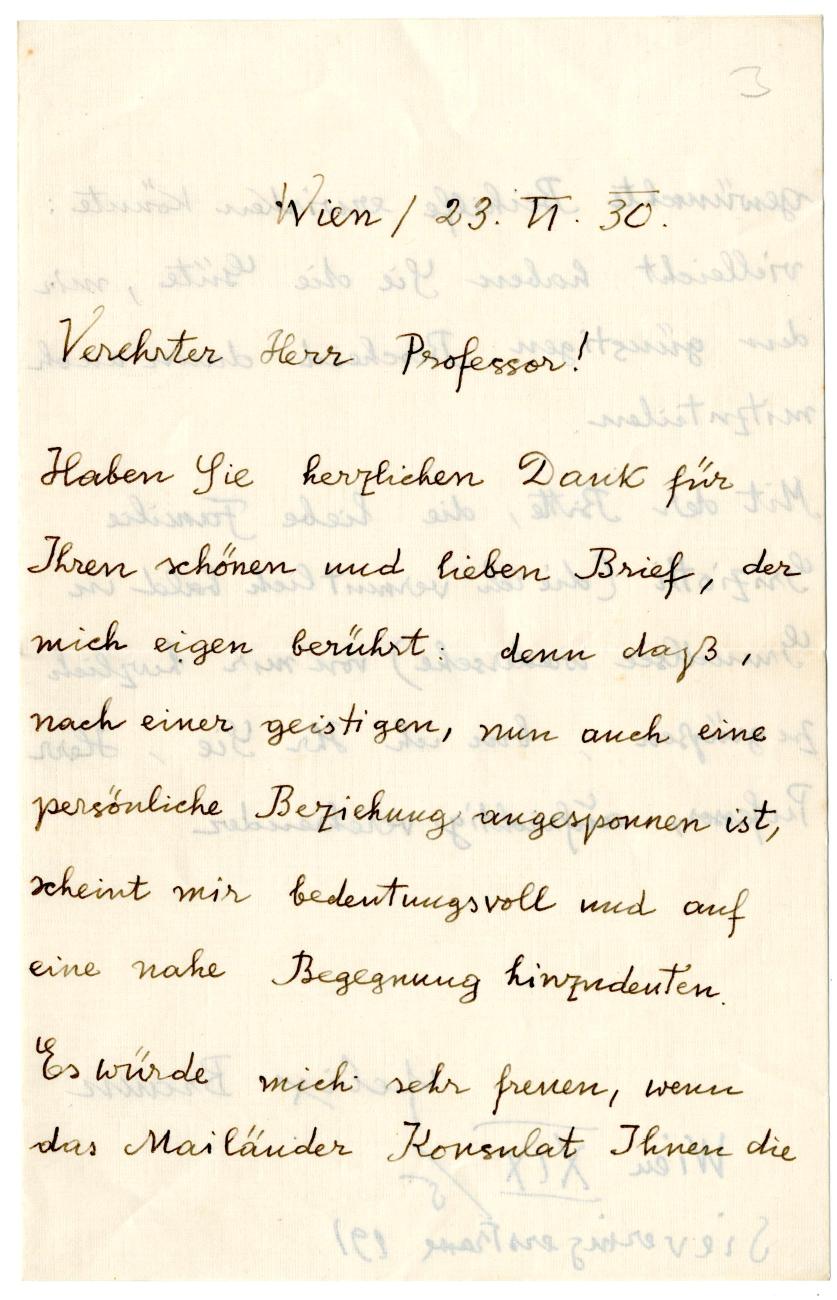 Wien / 23. VI. 30.
Verehrter Herr Professor!
Haben Sie herzlichen Dank für
Ihren schönen und lieben Brief, der
mich eigen berührt: denn daß,
nach einer geistigen, nun auch eine
persönliche Beziehung angesponnen ist,
scheint mir bedeutungsvoll und auf
eine nahe Begegnung hinzudeuten.
Es würde mich sehr freuen, wenn
das Mailänder Konsulat Ihnen die